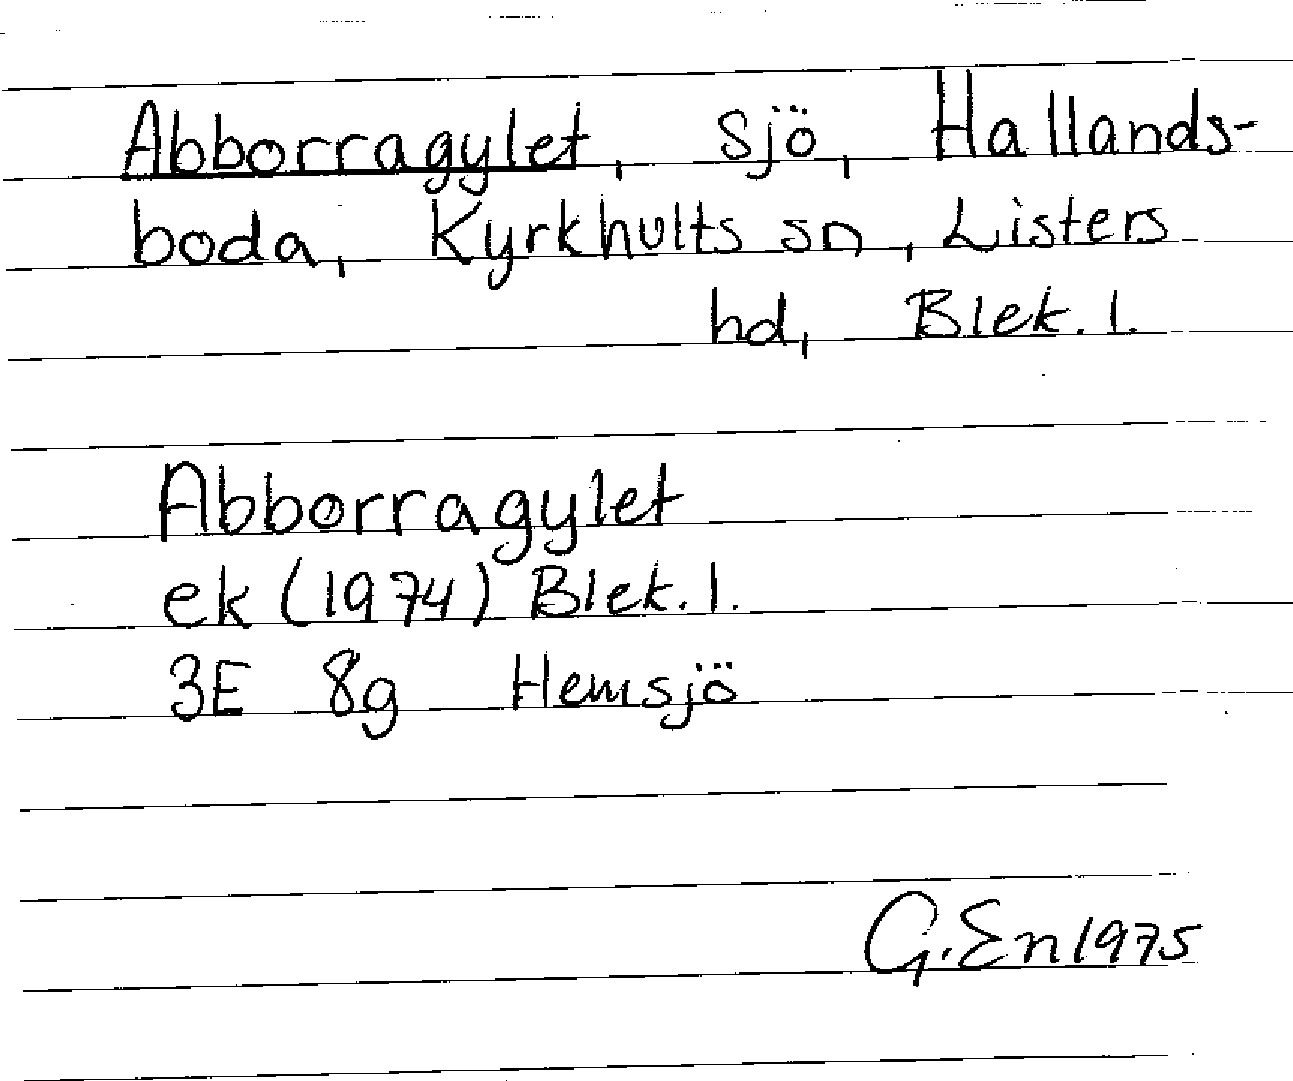 Abborragylet, sjö, Hallands-
boda, Kyrkhults sn, Listers
hd, Blek. l.
Abborragylet
ek (1974) Blek. l.
3E 8g Hemsjö
G. En 1975